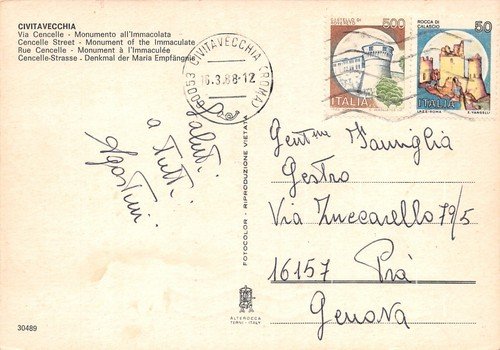 CIVITAVECCHIA
Via Cencelle - Monumento all'Immacolata
Cencelle Street - Monument of the Immaculate
Rue Cencelle - Monument à l'Immaculée
Cencelle-Strasse - Denkmal der Maria Empfängnis
00053 CIVITAVECCHIA (ROMA)
16.3.88-12
CASTELLO DI
ROVERETO
500
ITALIA
ROCCA DI
CALASCIO
50
ITALIA
I.P.Z.S. ROMA
E. VANGELLI
Saluti
a
Tutti.
Agostini
FOTOCOLOR - RIPRODUZIONE VIETATA
Gent.ma Famiglia
Gestro
Via Zuccarello 79/5
16157 Prà
Genova
ALTEROCCA
TERNI - ITALY
30489